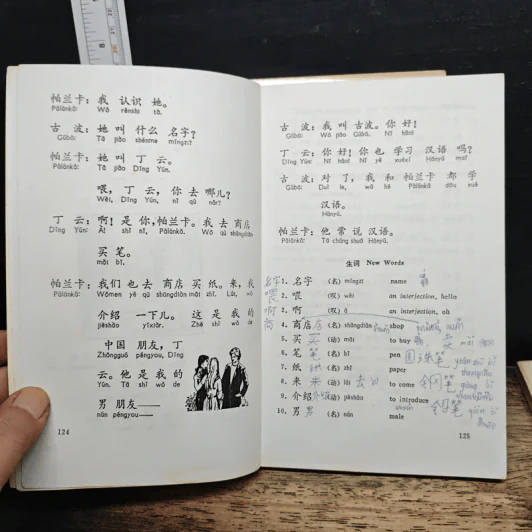 帕兰卡：我 认识 她。
Pàlánkǎ: Wǒ rènshi tā.
古 波：她 叫 什么 名字？
Gǔbō: Tā jiào shénme míngzi?
帕兰卡：她 叫 丁 云。
Pàlánkǎ: Tā jiào Dīng Yún.
喂，丁 云，你 去 哪儿？
Wèi, Dīng Yún, nǐ qù nǎr?
丁 云：啊！是 你，帕兰卡。我 去 商店
Dīng Yún: À! Shì nǐ, Pàlánkǎ. Wǒ qù shāngdiàn
买 笔。
mǎi bǐ.
帕兰卡：我们 也 去 商店 买 纸。来，我
Pàlánkǎ: Wǒmen yě qù shāngdiàn mǎi zhǐ. Lái, wǒ
介绍 一下儿。 这 是 我 的
jièshào yíxiàr. Zhè shì wǒ de
中国 朋友，丁
Zhōngguó péngyou, Dīng
云。他 是 我 的
Yún. Tā shì wǒ de
男 朋友——
nán péngyou——
124
古 波：我 叫 古波。你 好！
Gǔbō: Wǒ jiào Gǔbō. Nǐ hǎo!
丁 云：你 好！你 也 学习 汉语 吗？
Dīng Yún: Nǐ hǎo! Nǐ yě xuéxí Hànyǔ ma?
古 波：对 了，我 和 帕兰卡 都 学
Gǔbō: Duì le, wǒ hé Pàlánkǎ dōu xué
汉语。
Hànyǔ.
帕兰卡：他 常 说 汉语。
Pàlánkǎ: Tā cháng shuō Hànyǔ.
生词 New Words
名字 1. 名字 (名) míngzi name
喂 2. 喂 (叹) wèi an interjection, hello
啊 3. 啊 (叹) à an interjection, oh
商 4. 商店 店 (名) shāngdiàn shop
5. 买 买 (动) mǎi to buy 卖 mài
6. 笔 笔 (名) bǐ pen 圆珠笔 yuán zhū bǐ
7. 纸 纸 (名) zhǐ paper
8. 来 来 (动) lái 去 to come 钢笔 gāng bǐ
9. 介绍 介绍 (动) jièshào to introduce
10. 男 男 (名) nán male 铅笔 qiān bǐ
125